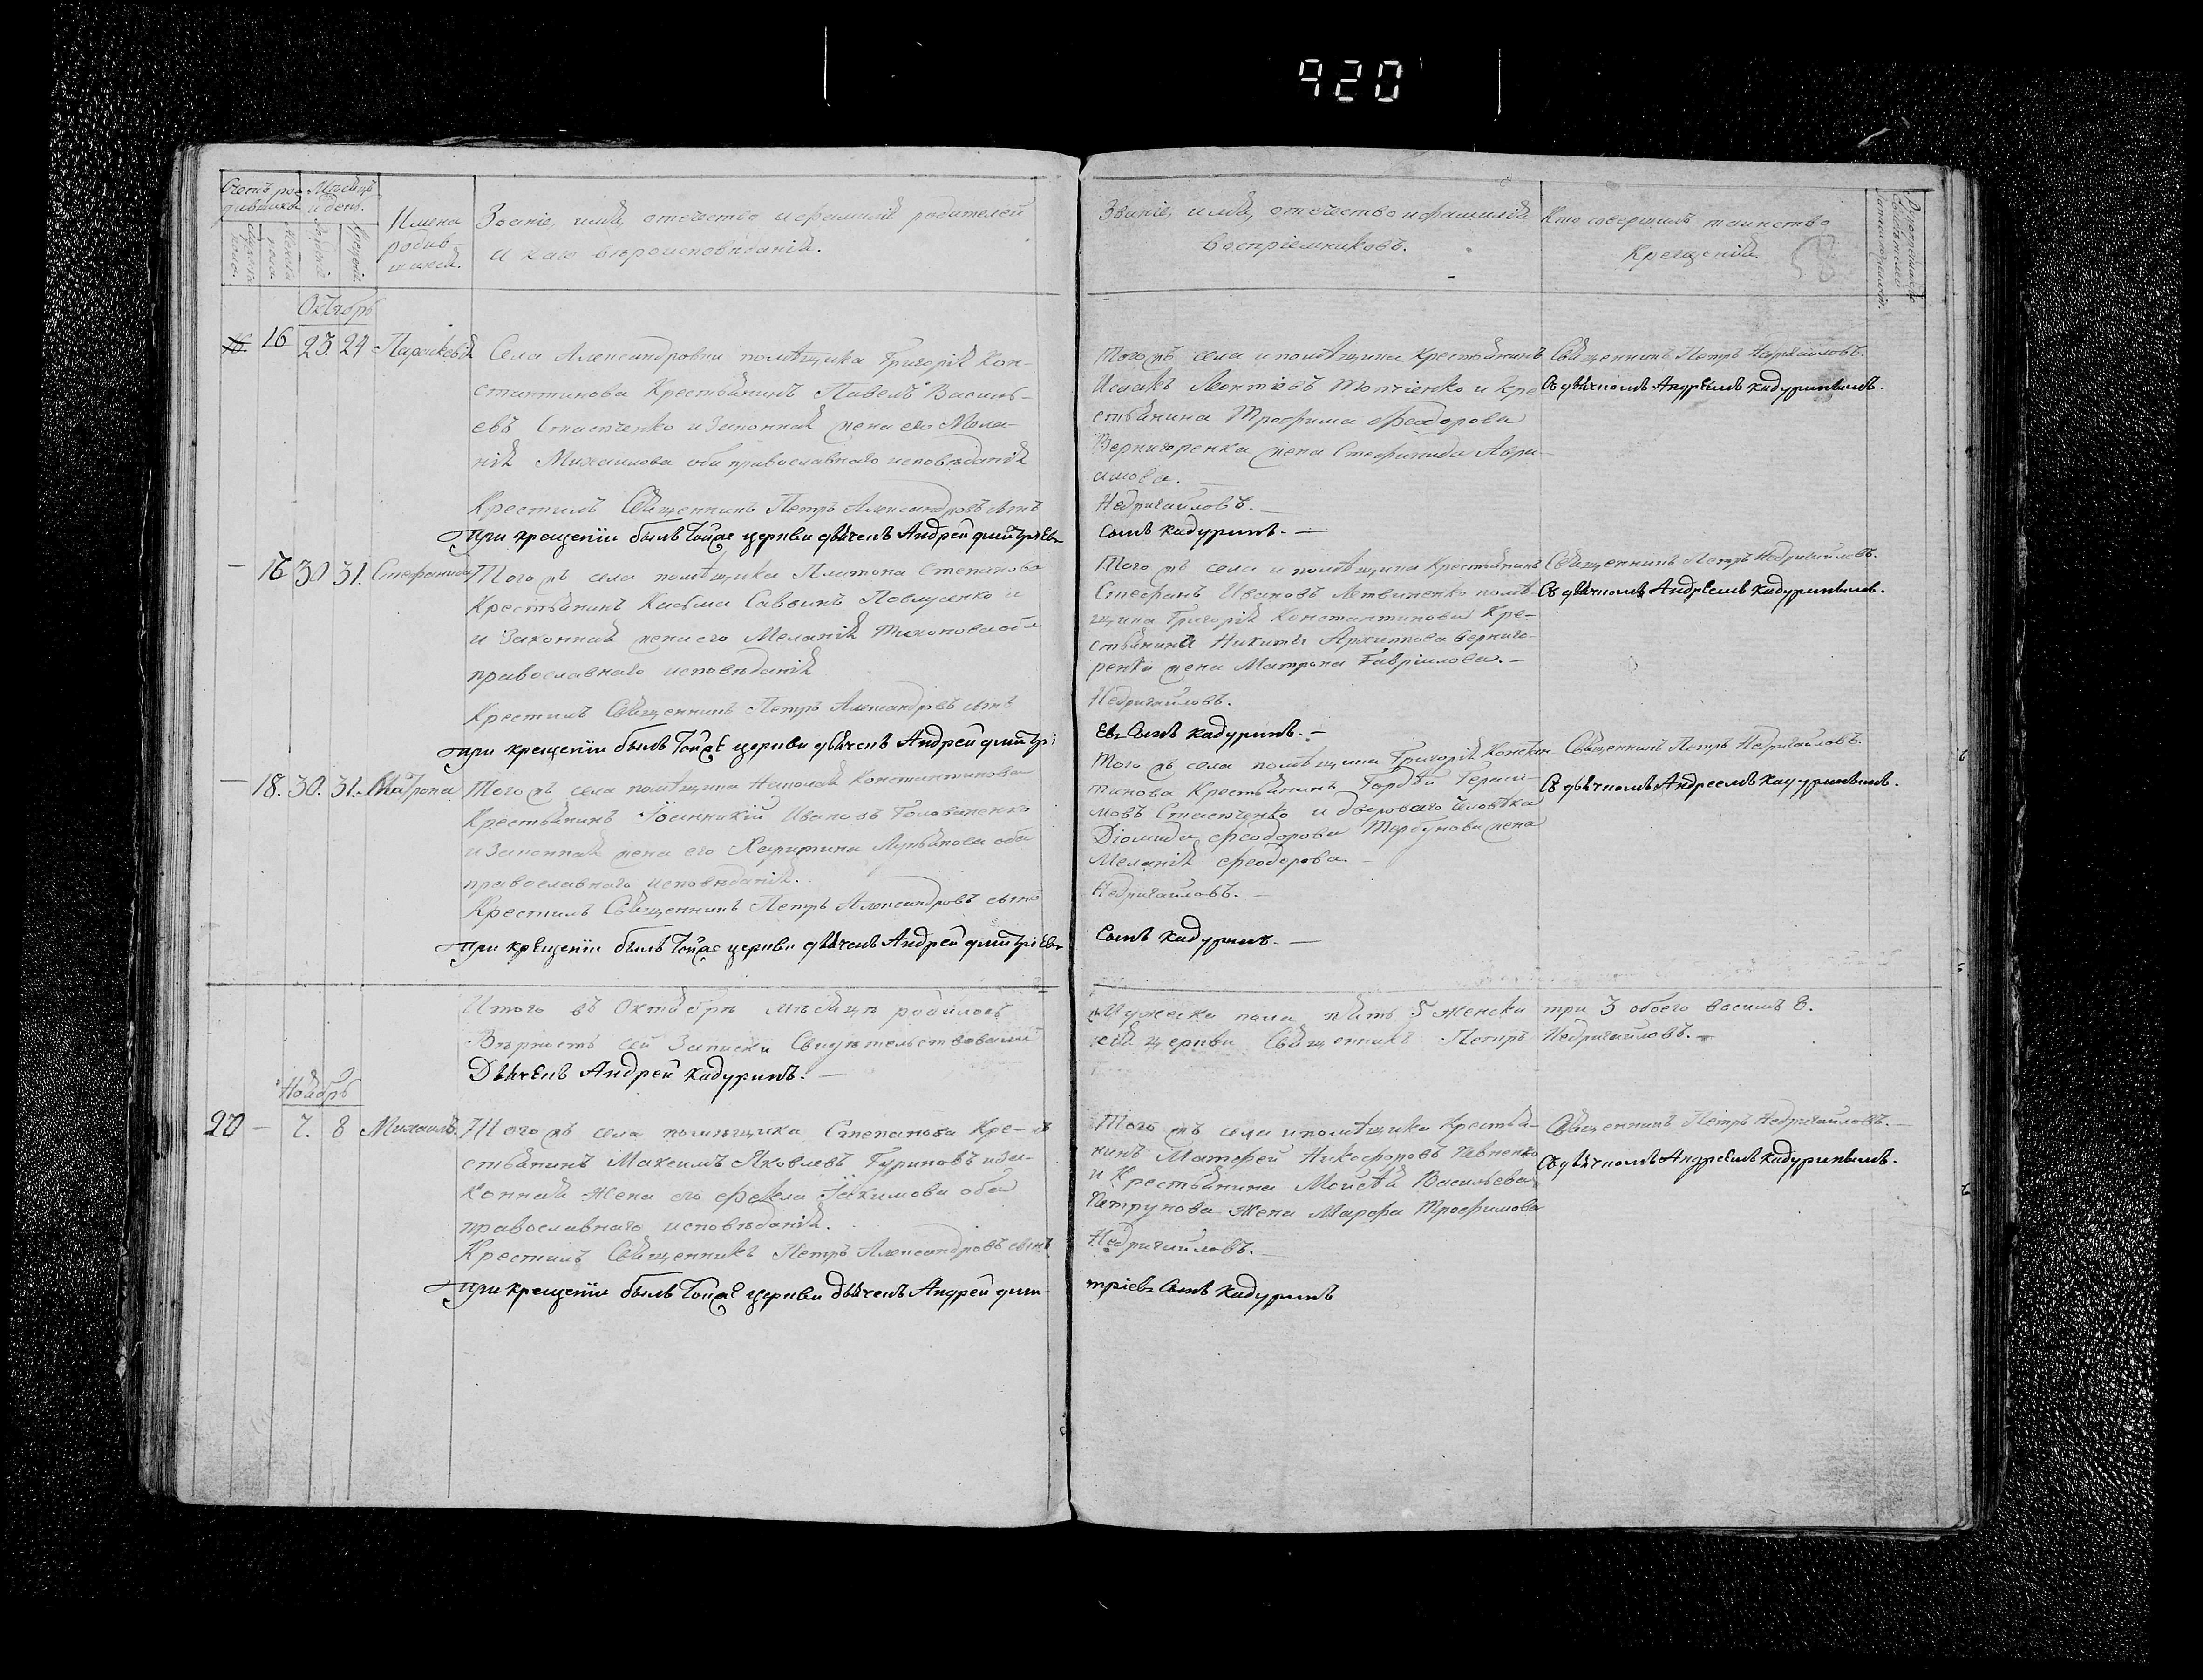 920
Счетъ родившихся
Мѣсяцъ и день.
Имена родившихся.
Званіе, имя, отечество и фамилія родителей
и каго вѣроисповѣданія.
Званіе, имя, отечество и фамилія
воспріемниковъ.
Кто совершилъ таинство
крещенія.
58
Октябрь
16 23. 24 Параскевія
Села Александровки помѣщика Григорія Кон-
стантинова Крестьянинъ Павелъ Василь-
евъ Стасюченко и законная жена его Мела-
нія Михаилова оба православнаго исповѣданія
Крестилъ Священникъ Петръ Александровъ сынъ
При крещеніи былъ тояже церкви дьячекъ Андрей Дмитріевъ
Того жъ села и помѣщика Крестьянинъ
Исаакъ Леонтіевъ Топчіенко и кре-
стьянина Трофима Феодорова
Вернигоренка жена Стефанида Авра-
амова.
Недригайловъ.
сынъ Кадуринъ.
Священникъ Петръ Недригайловъ.
Съ дьячкомъ Андреемъ Кадуринымъ.
— 30 31. Стефанида
Того жъ села помѣщика Платона Степанова
Крестьянинъ Касьма Саввинъ Павлусенко и
и законная жена его Меланія Тихонова оба
православнаго исповѣданія
Крестилъ Священникъ Петръ Александровъ сынъ
При крещеніи былъ тояже церкви дьячекъ Андрей Дмитрі
Того жъ села и помѣщика Крестьянинъ
Стефанъ Ивановъ Литвиненко помѣ-
щика Григорія Константинова Кре-
стьянина Никиты Архипова Верниго-
ренка жена Матрона Гавріилова.
Недригайловъ.
евъ сынъ Кадуринъ.
Священникъ Петръ Недригайловъ.
Съ дьячкомъ Андреемъ Кадуринымъ.
— 18. 30. 31. Матрона
Того жъ села помѣщика Николая Константинова
Крестьянинъ Іоанникій Ивановъ Головченко
и законная жена его Харитина Лукьянова оба
православнаго исповѣданія.
Крестилъ Священникъ Петръ Александровъ сынъ
При крещеніи былъ тояже церкви дьячекъ Андрей Дмитріевъ
Того жъ села помѣщика Григорія Констан-
тинова Крестьянинъ Гордѣй Гераси-
мовъ Стасюченко и двороваго человѣка
Діомида Феодорова жена
Меланія Феодорова
Недригайловъ.
сынъ Кадуринъ.
Священникъ Петръ Недригайловъ.
Съ дьячкомъ Андреемъ Кадуринымъ.
Итого въ Октябрѣ мѣсяцѣ родилось
мужеска пола пять 5 женска три 3 обоего восемь 8.
Вѣрность сей записки свидѣтельствовали
сея церкви Священникъ Петръ Недригайловъ.
Дьячекъ Андрей Кадуринъ.
Ноябрь
20 — 7. 8 Михаилъ.
Того жъ села помѣщика Степанова Кре-
стьянинъ Максимъ Яковлевъ Гуриновъ и за-
конная жена его Фекла Іоакимова оба
православнаго исповѣданія.
Крестилъ Священникъ Петръ Александровъ сынъ
При крещеніи былъ тояже церкви дьячекъ Андрей Дми-
Того жъ села и помѣщика Крестья-
нинъ Матфей Никифоровъ Певненко
и Крестьянина Моисѣя Васильева
Петрунова жена Марфа Трофимова
Недригайловъ.
тріевъ сынъ Кадуринъ
Священникъ Петръ Недригайловъ.
Съ дьячкомъ Андреемъ Кадуринымъ.